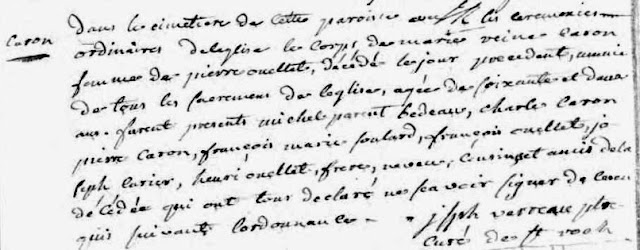 Caron
dans le cimetiere de cette paroisse avec les ceremonies
ordinaires de leglise le corps de marie reine caron
femme de pierre ouellet, décédé le jour precedent, munie
de tous les sacremens de leglise, agée de soixante et deux
ans. furent presents michel parent bedeau, charle Caron
pierre Caron, françois marie soulard, françois ouellet, jo
seph Carier, henri ouellet, frere, neveu, cousin et amis de la
décédée qui ont tous declaré ne savoir signer de ce en
quis suivant lordonnance. jseph verreau ptre
curé de st roch